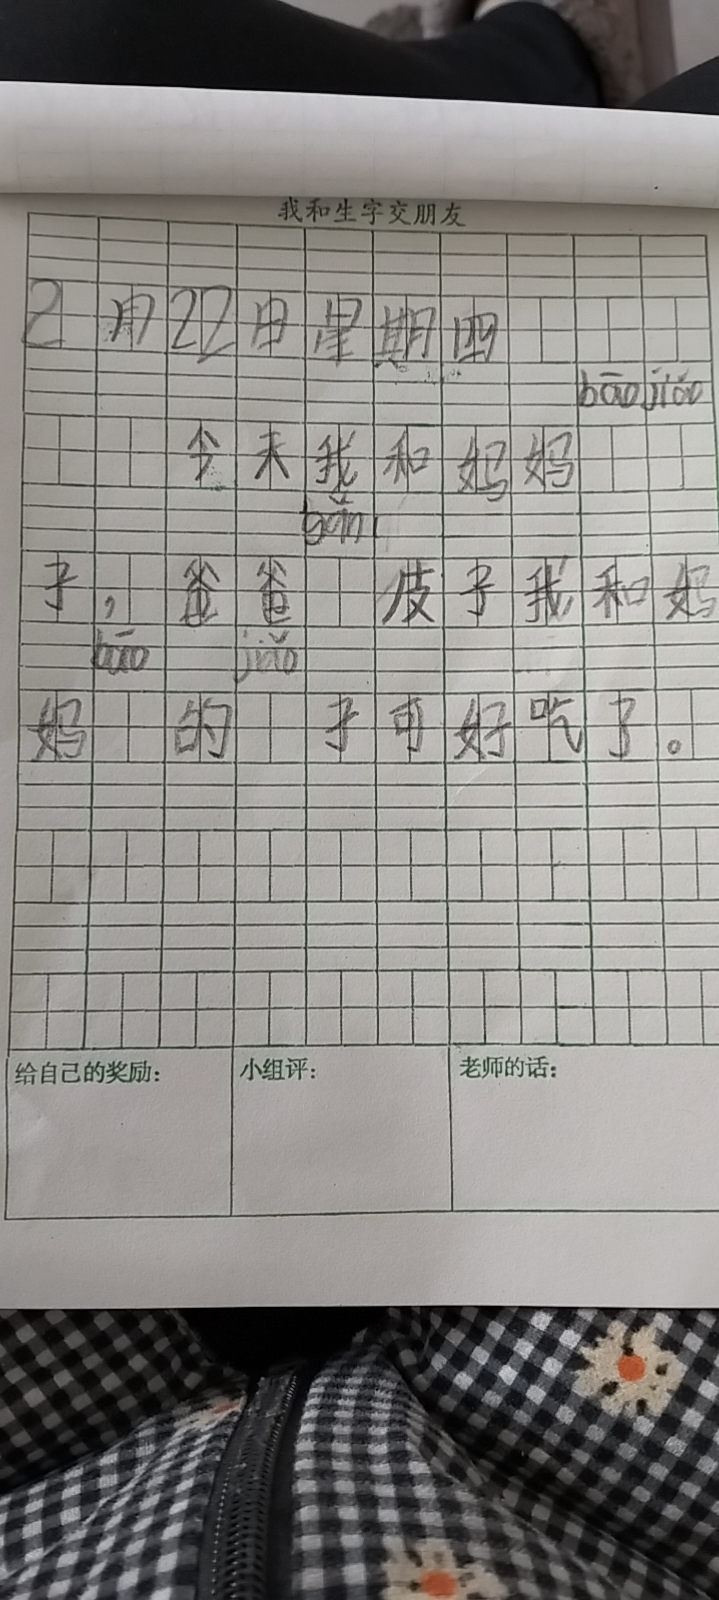 我和生字交朋友
2月22日星期四
bāo jiǎo
今天我和妈妈
gǎn
子，爸爸 皮子我和妈
bāo jiǎo
妈 的 子可好吃了。
给自己的奖励： 小组评： 老师的话：